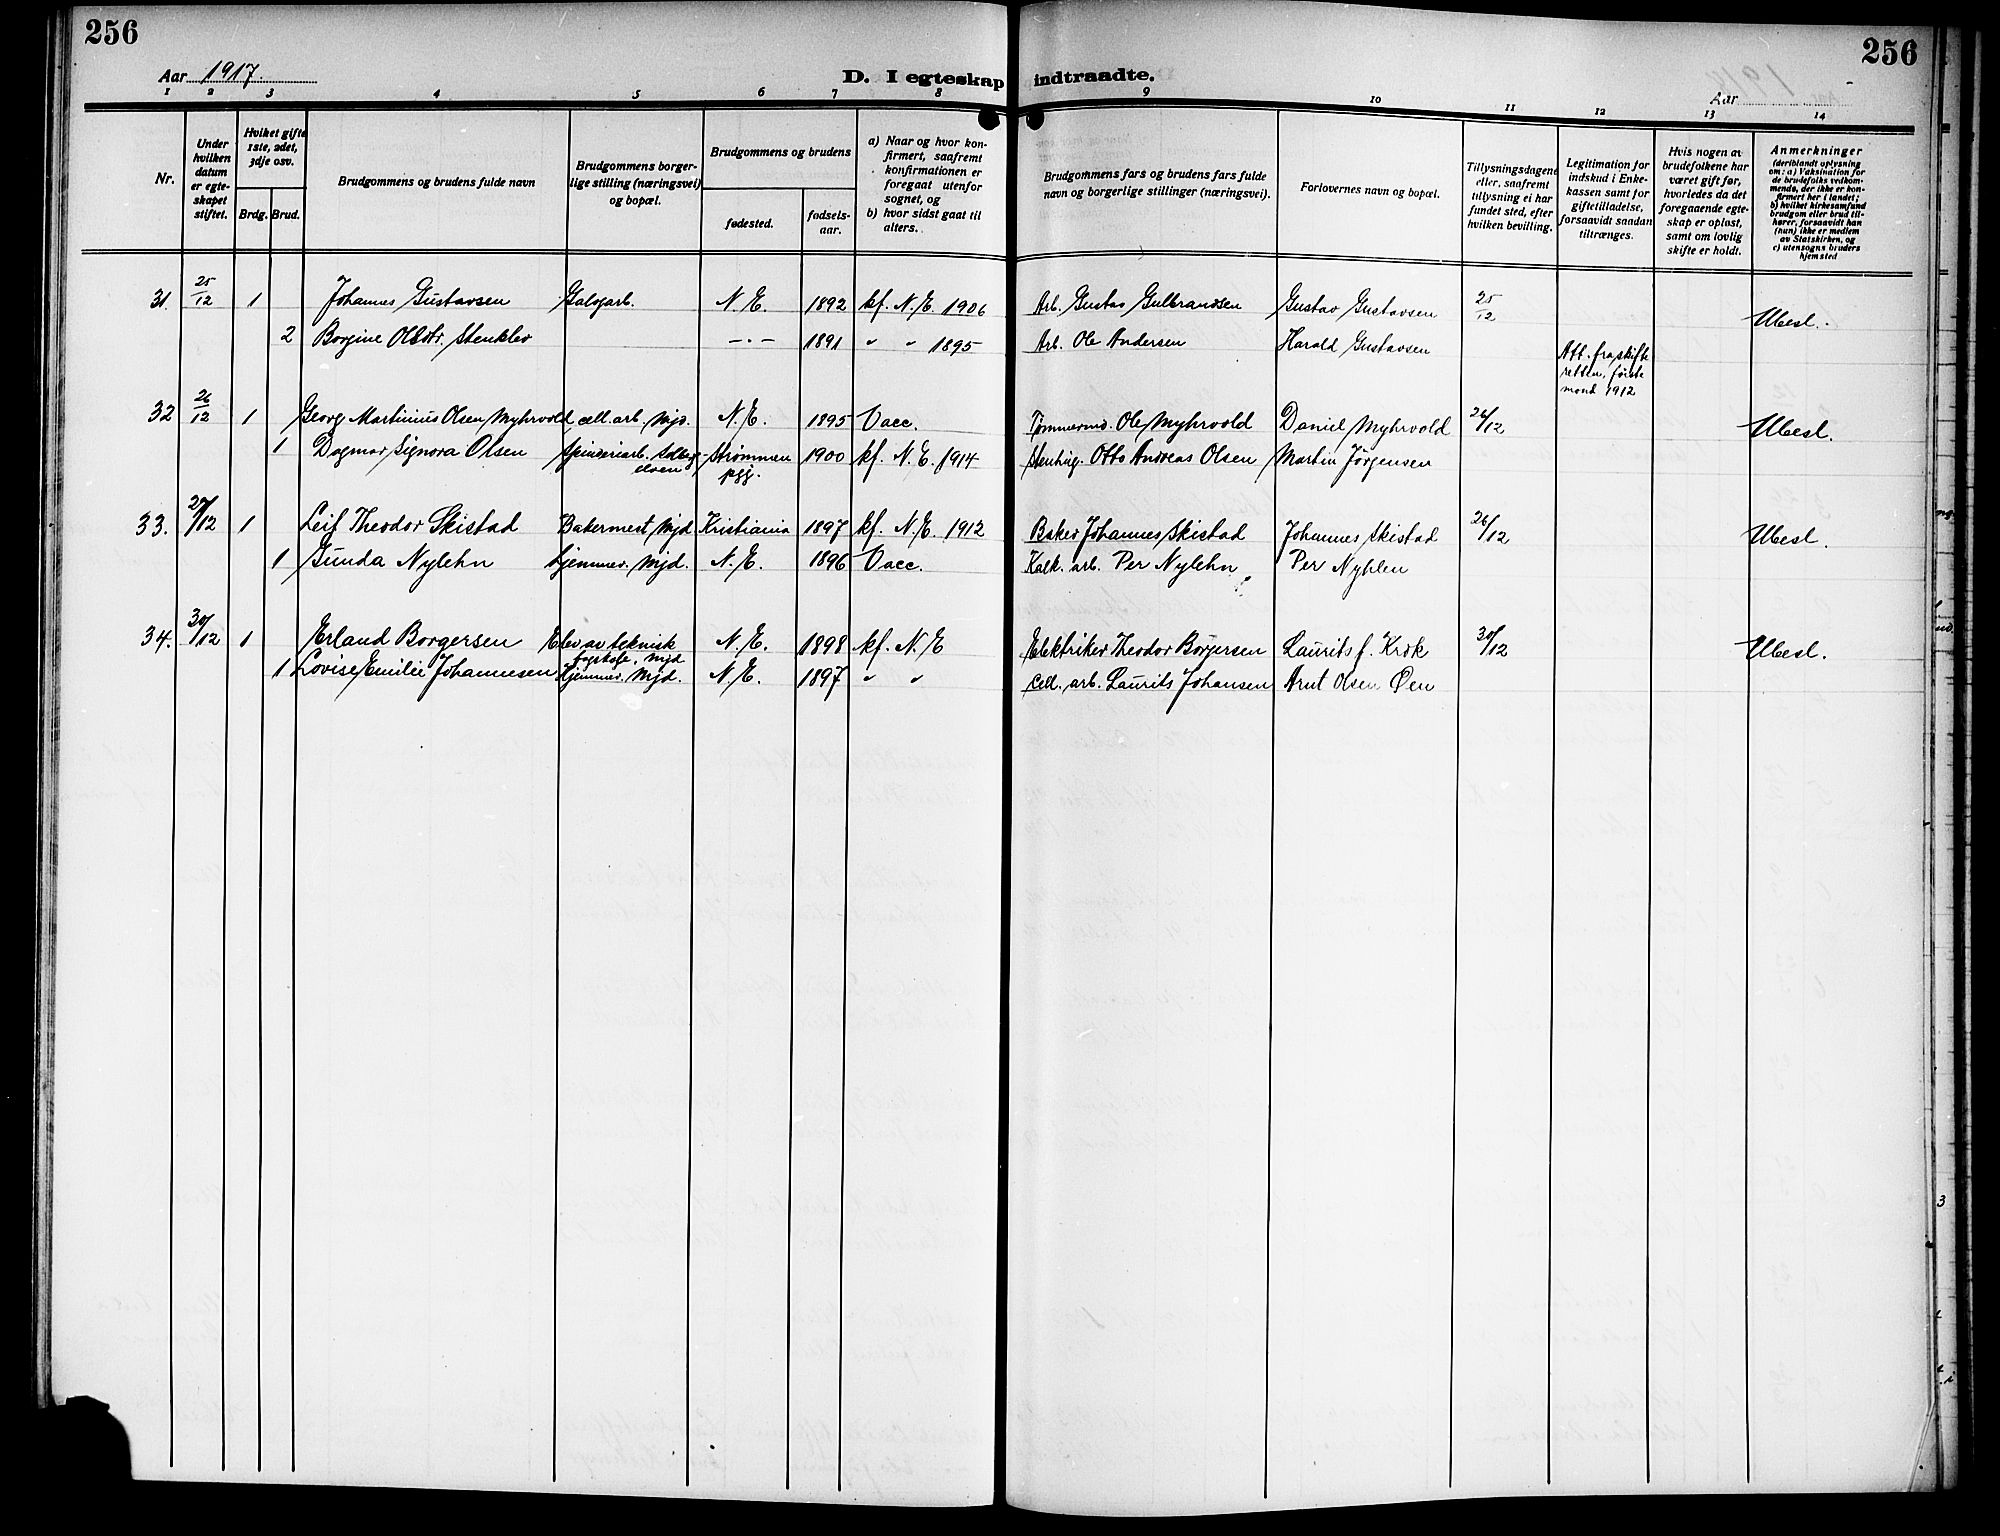 256
256
Aar 1917.
D. I egteskap indtraadte.
Aar
1 2 3 4 5 6 7 8 9 10 11 12 13 14
Nr.
Under hvilken datum er egte-skapet stiftet.
Hvilket gifte 1ste, 2det, 3dje osv.
Brdg. Brud.
Brudgommens og brudens fulde navn
Brudgommens borger-lige stilling (næringsvei) og bopæl.
Brudgommens og brudens
fødested.
fødsels-aar.
a) Naar og hvor kon-firmert, saafremt konfirmationen er foregaat utenfor sognet, og
b) hvor sidst gaat til alters.
Brudgommens fars og brudens fars fulde navn og borgerlige stillinger (næringsvei).
Forlovernes navn og bopæl.
Tillysningsdagene eller, saafremt tillysning ei har fundet sted, efter hvilken bevilling.
Legitimation for indskud i Enke-kassen samt for giftetilladelse, forsaavidt saadan tiltrænges.
Hvis nogen av brudefolkene har været gift før, hvorledes da det foregaaende egte-skap er opløst, samt om lovlig skifte er holdt.
Anmerkninger
(deriblandt oplysning om: a) Vaksination for de brudefolks vedkom-mende, der ikke er kon-firmert her i landet; b) hvilket kirkesamfund brudgom eller brud til-hører, forsaavidt han (hun) ikke er medlem av Statskirken, og c) utensogns bruders hjemsted
31. 25/12 1 Johannes Gustavsen N. E. 1892 kf. N. E. 1906 Arb. Gustav Gulbrandsen Gustav Gustavsen 25/12 Ubesl.
2 Borgine Olsdtr. Stenklev -"- 1891 " " 1895 Arb. Ole Andersen Harald Gustavsen
Att. fra skifte
retten, første
mand 1912
32 26/12 1 Georg Martinius Olsen Myhrvold cell. arb. Mjd. N. E. 1895 Vacc. Tømmermd. Ole Myhrvold Daniel Myhrvold 26/12 Ubesl.
1 Dagmar Signora Olsen Spinderiarb. Solberg-elven Strømmen pgj. 1900 kf. N. E. 1914 Stenhug. Otto Andreas Olsen Martin Jörgensen
33. /12 1 Leif Theodor Skistad Bakermest. Mjd Kristiania 1897 kf. N. E. 1912 Baker Johannes Skistad Johannes Skistad 26/12 Ubesl.
1 Gunda Nylehn hjemmev. Mjd. N. E. 1896 Vacc. Kalk. arb. Per Nylehn Per Nyhlen
34. 30/12 1 Erland Borgersen Elev av teknisk fagskole, Mjd N. E. 1898 kf. N. E Elektriker Theodor Borgersen Laurits J. Krok 30/12 Ubesl.
1 Lovise Emilie Johannesen Hjemmev. Mjd. N. E. 1897 " " Cell. arb. Laurits Johansen Arnt Olsen Øen